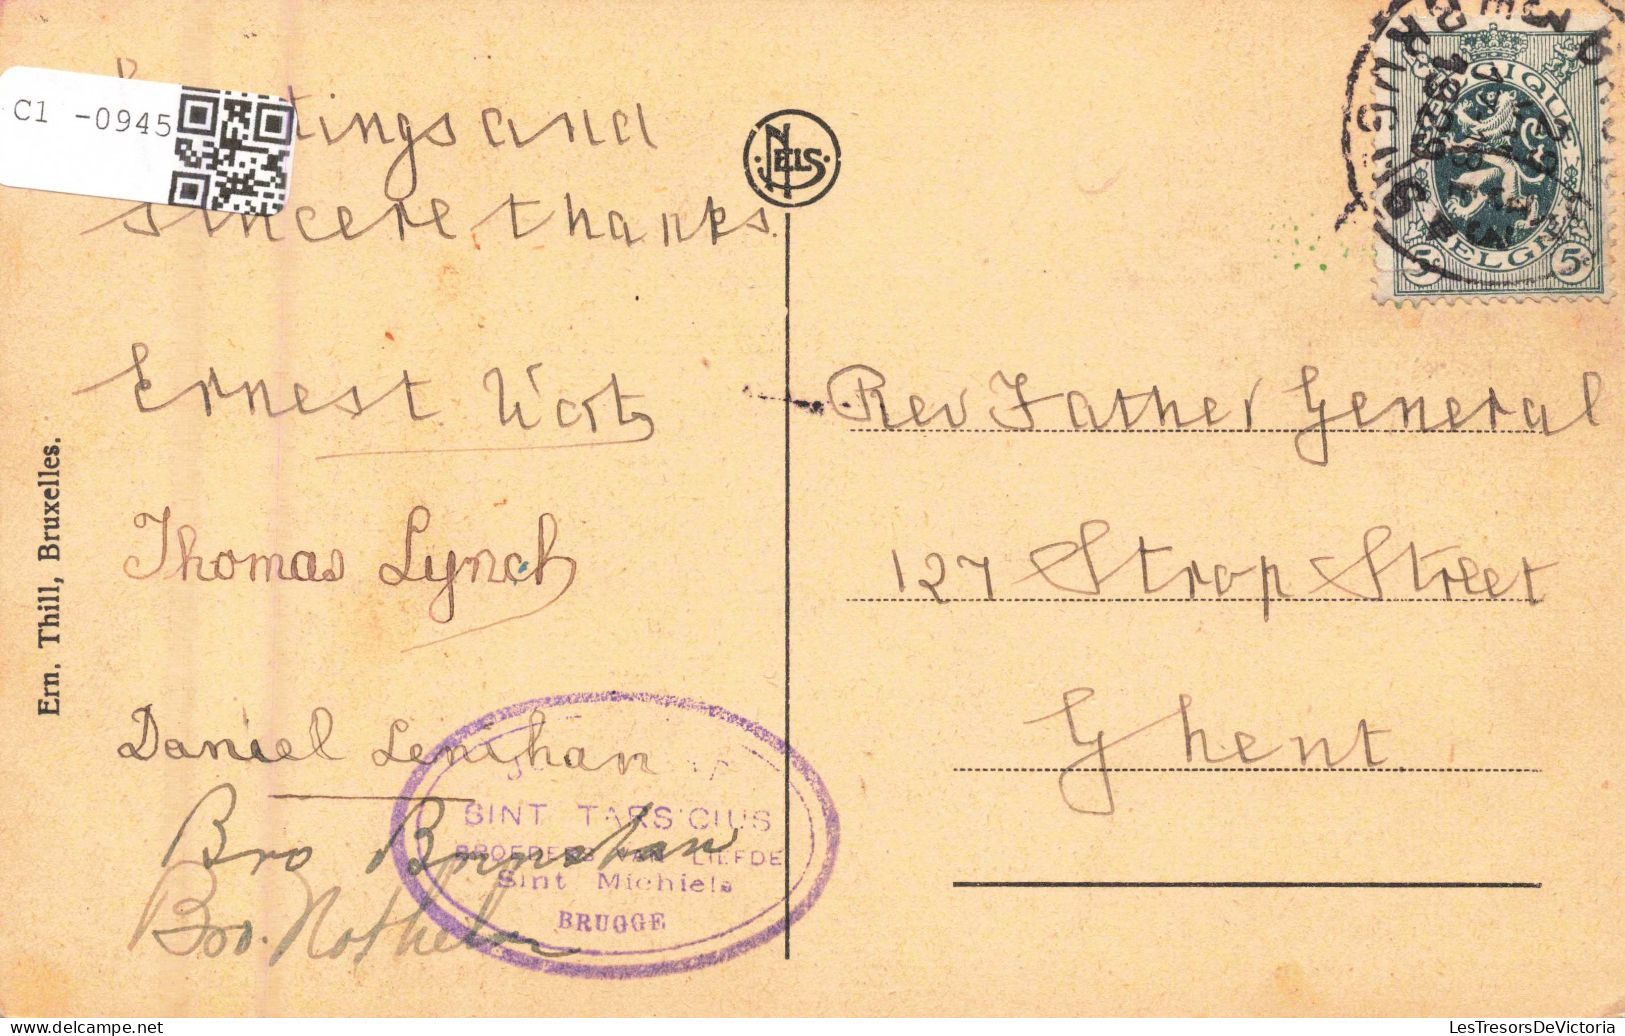 C1 -0945
tings and
sincere thanks.
NELS
Ernest
Thomas Lynch
Daniel Lenihan
Bro
Bro.
SINT TARSICIUS
BROEDERS VAN LIEFDE
Sint Michiels
BRUGGE
Ern. Thill, Bruxelles.
BELGIQUE
BELGIË
5c 5c
BRUGGE
Rev Father General
127 Strop Street
Ghent.
LesTresorsDeVictoria
delcampe.net